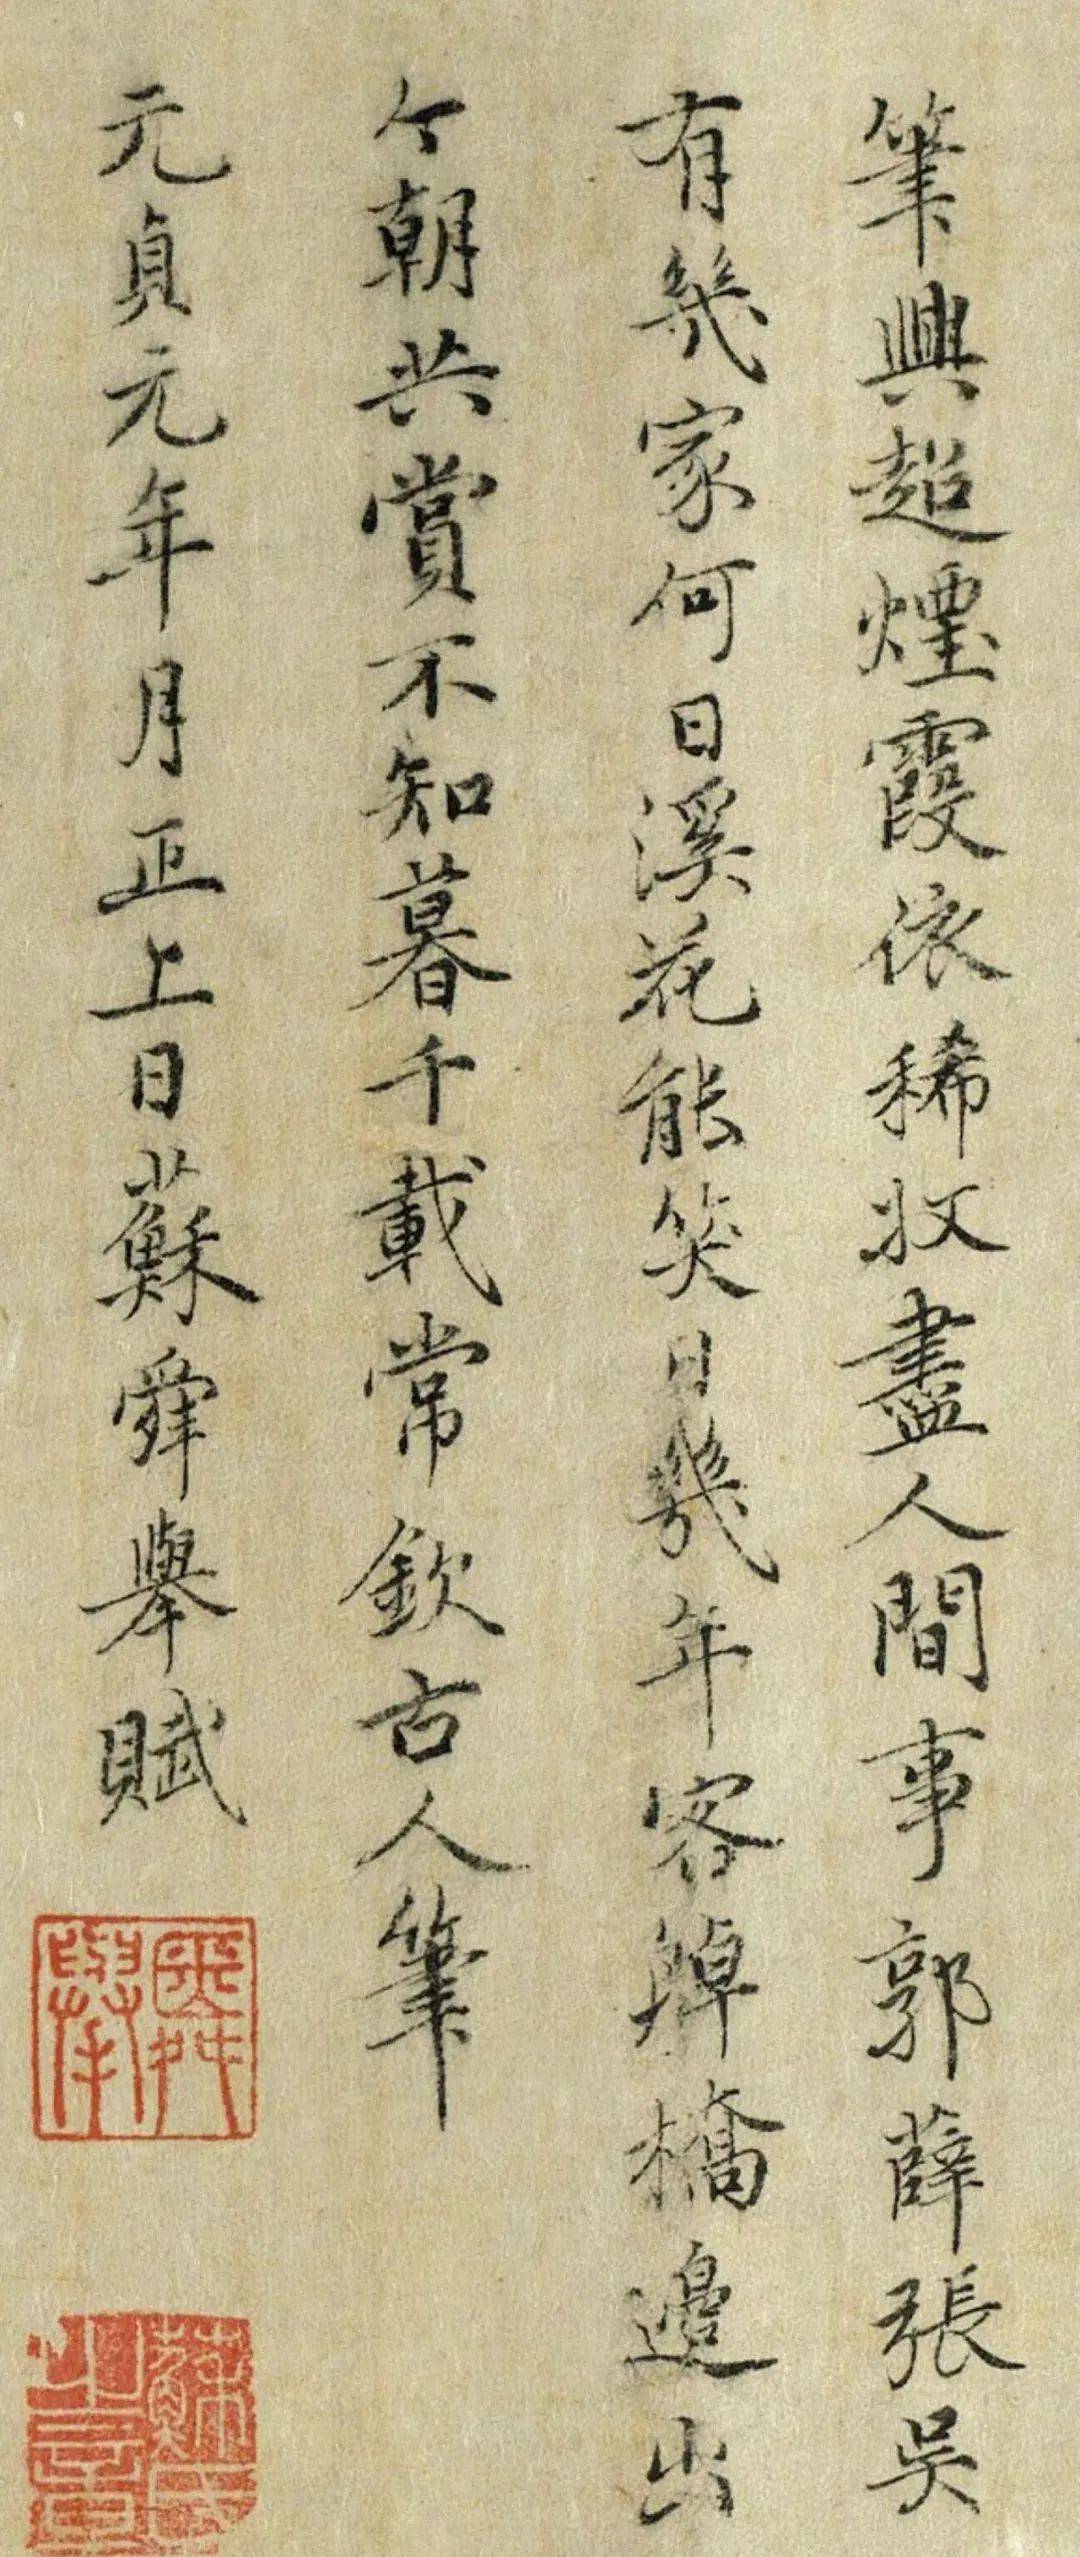 筆興超煙霞依稀收盡人間事郭薛張吳
有幾家何日溪花能笑日幾年客綽橋邊出
今朝共賞不知暮千載常欽古人筆
元貞元年月正上日蘇舜舉賦
舜舉